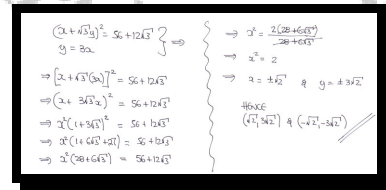 (x + √3y)² = 56 + 12√3
y = 3x
} ⇒
⇒ [x + √3(3x)]² = 56 + 12√3
⇒ (x + 3√3x)² = 56 + 12√3
⇒ x²(1 + 3√3)² = 56 + 12√3
⇒ x²(1 + 6√3 + 27) = 56 + 12√3
⇒ x²(28 + 6√3) = 56 + 12√3
⇒ x² = 2(28 + 6√3) / 28 + 6√3
⇒ x² = 2
⇒ x = ±√2 & y = ±3√2
HENCE
(√2, 3√2) & (-√2, -3√2)